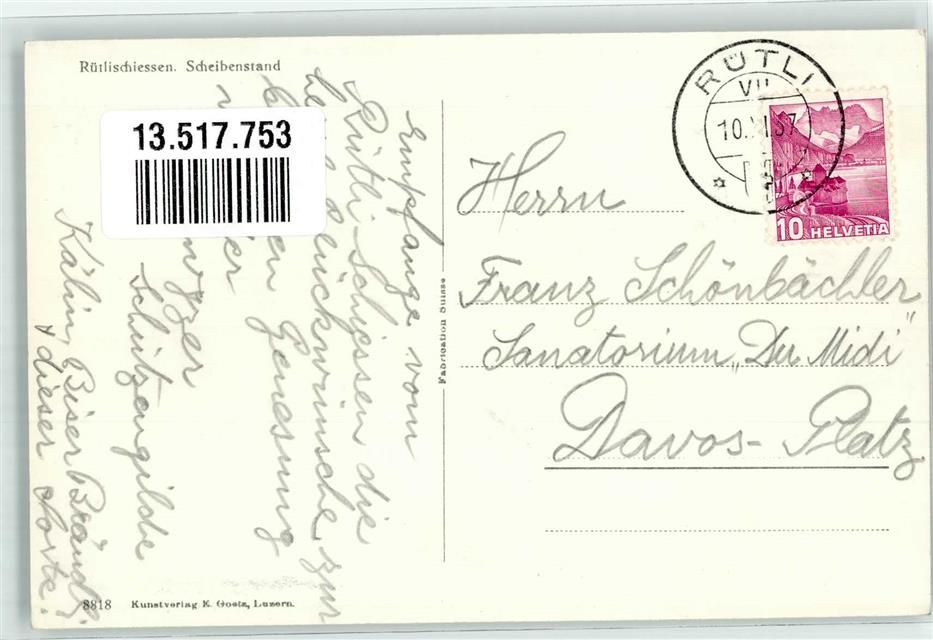 Rütlischiessen. Scheibenstand
13.517.753
RÜTLI
VII
10. XI. 37
10 HELVETIA
Empfange vom
Rütli-Schiessen die
Glückwünsche zur
Genesung
Schützengilde
Kälin, Biser Brändli
+ dieser Sorte!
Fabrication Suisse
Herrn
Franz Schönbächler
Sanatorium „Du Midi"
Davos-Platz
8818 Kunstverlag E. Goetz, Luzern.